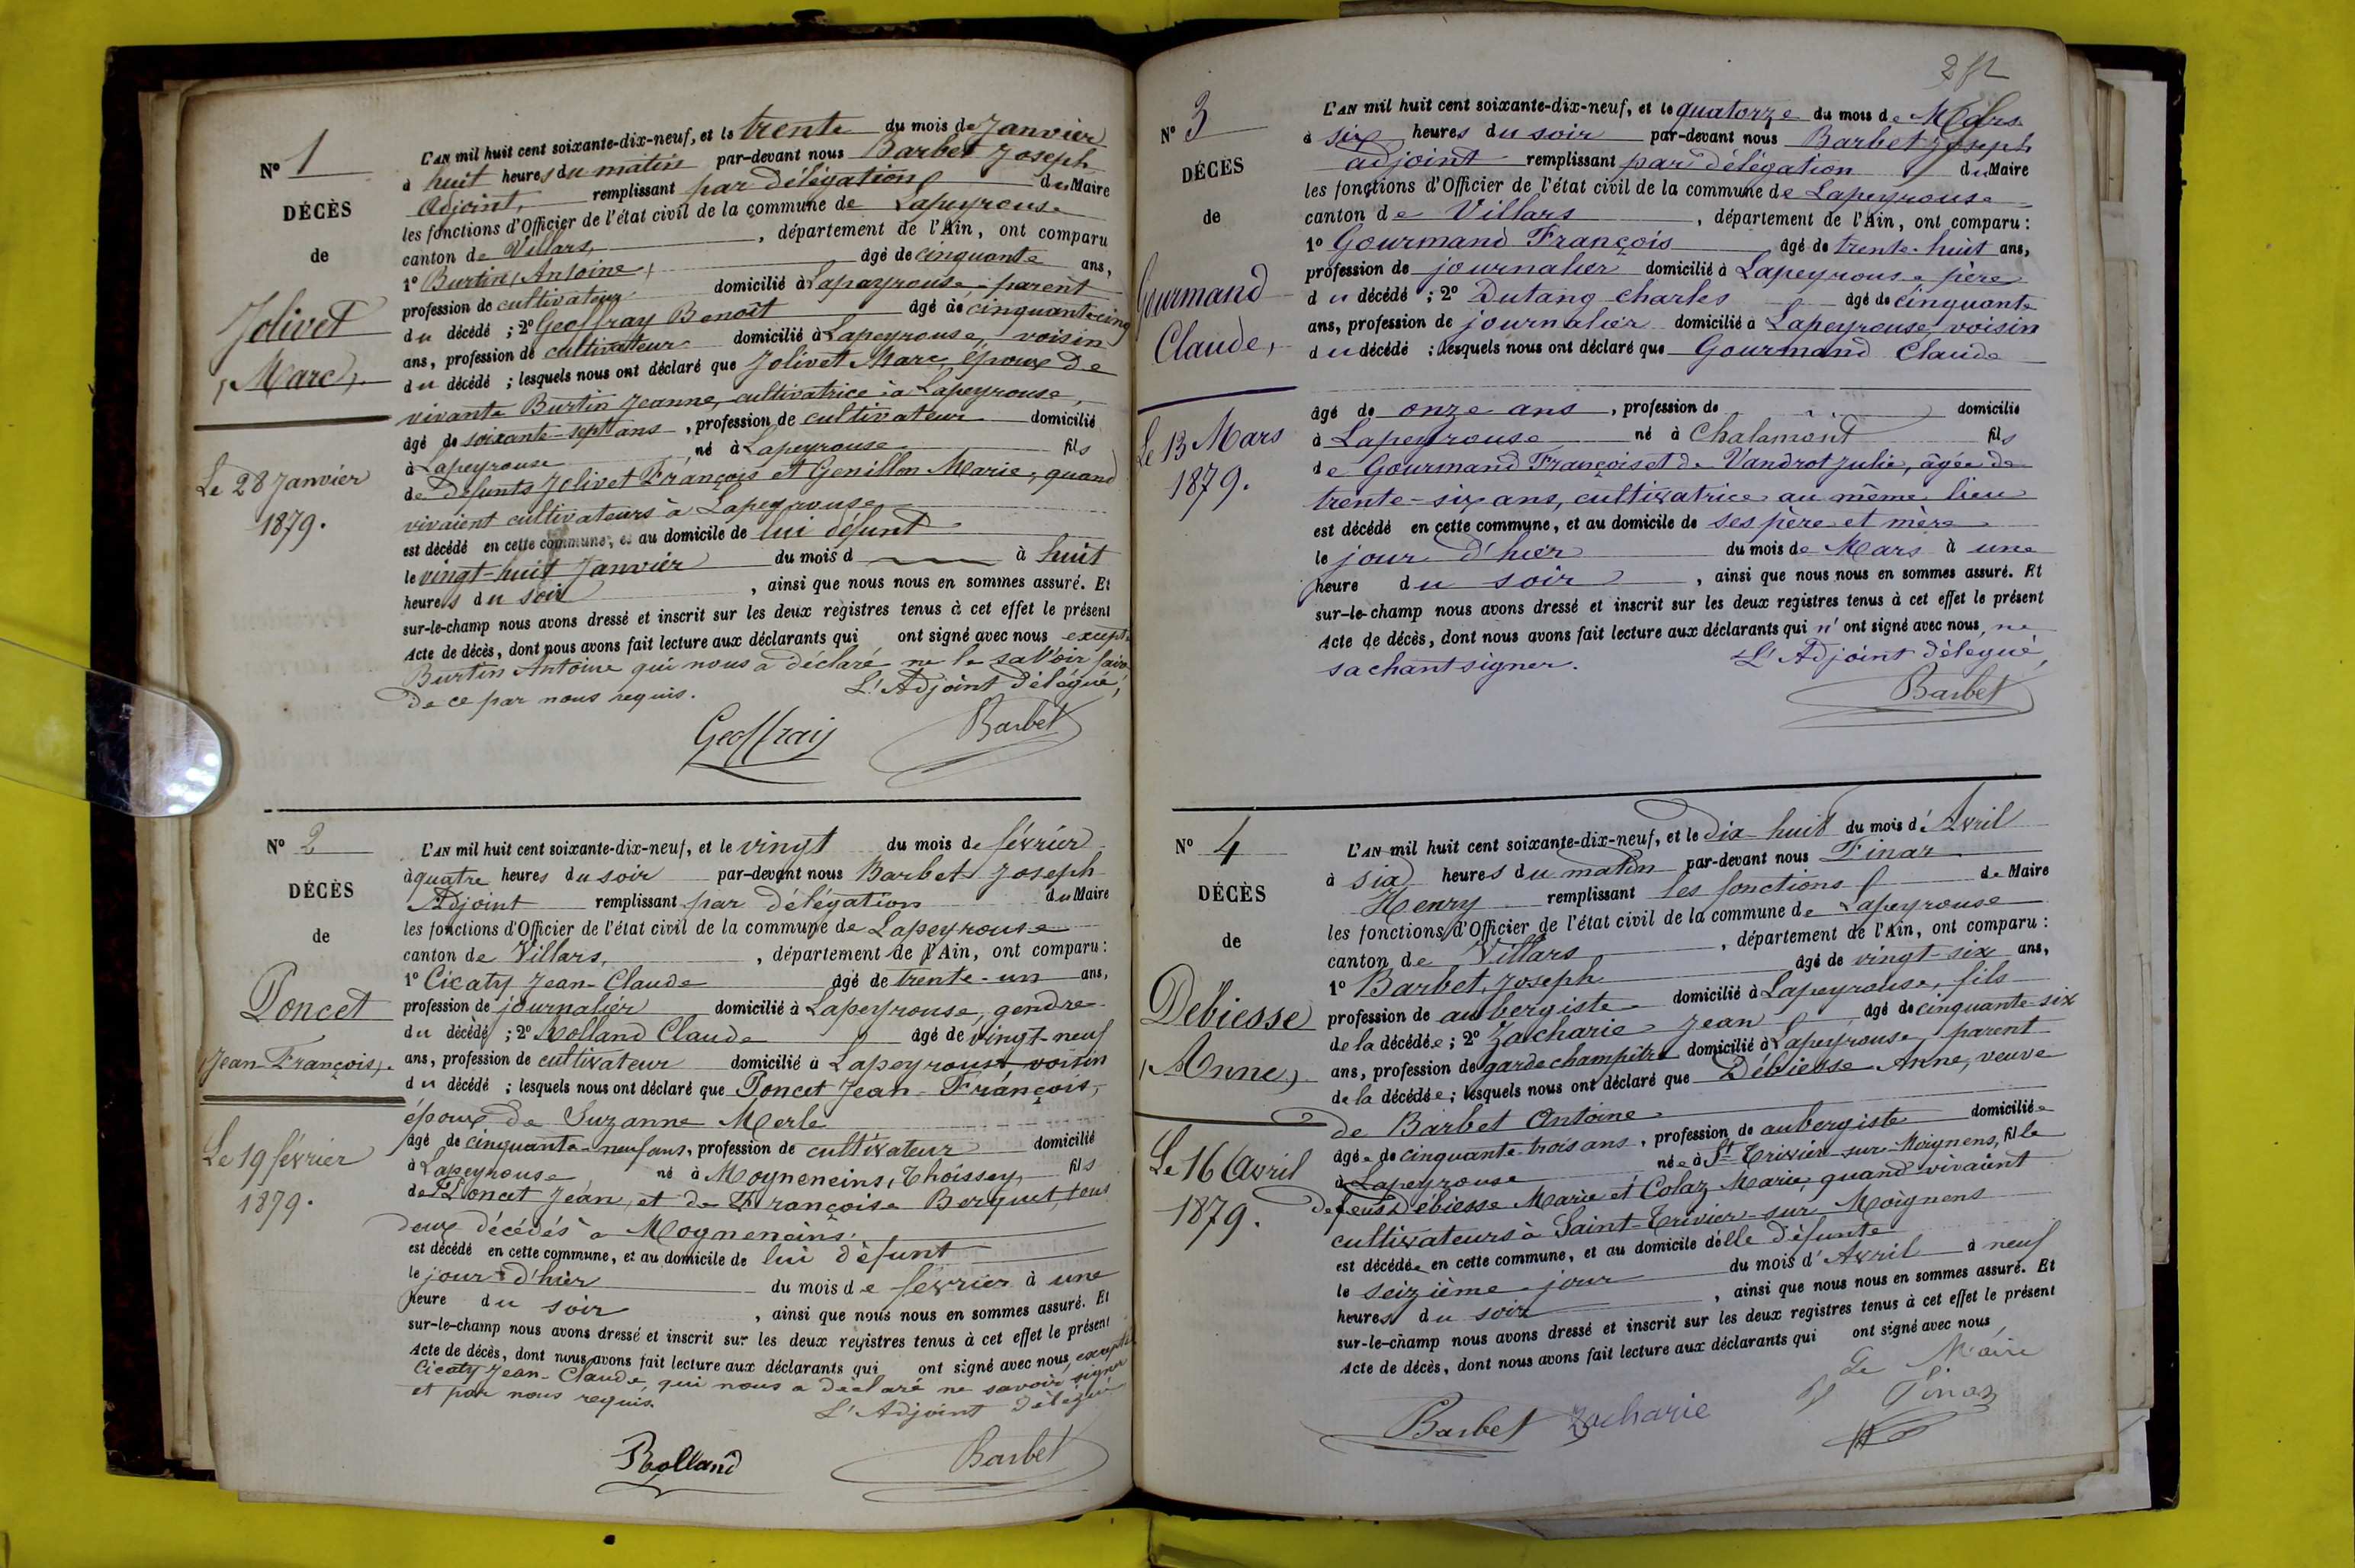 N° 1
DÉCÈS
de
Jolivet
Marc
Le 28 Janvier
1879.
L'AN mil huit cent soixante-dix-neuf, et le trente du mois de Janvier
à huit heures du matin par-devant nous Barbet Joseph
Adjoint, remplissant par délégation du Maire
les fonctions d'Officier de l'état civil de la commune de Lapeyrouse
canton de Villars, , département de l'Ain, ont comparu
1° Burtin Antoine, âgé de cinquante ans,
profession de cultivateur domicilié à Lapeyrouse parent
du décédé ; 2° Geoffray Benoît âgé de cinquante-cinq
ans, profession de cultivateur domicilié à Lapeyrouse, voisin
du décédé ; lesquels nous ont déclaré que Jolivet Marc, époux de
vivante Burtin Jeanne, cultivatrice à Lapeyrouse,
âgé de soixante-sept ans , profession de cultivateur domicilié
à Lapeyrouse né à Lapeyrouse fils
de défunts Jolivet François et Genillon Marie, quand
vivaient cultivateurs à Lapeyrouse
est décédé en cette commune, et au domicile de lui défunt
le vingt-huit Janvier du mois d à huit
heures du soir , ainsi que nous nous en sommes assuré. Et
sur-le-champ nous avons dressé et inscrit sur les deux registres tenus à cet effet le présent
Acte de décès, dont nous avons fait lecture aux déclarants qui ont signé avec nous excepté
Burtin Antoine qui nous a déclaré ne le savoir faire
de ce par nous requis. L'Adjoint délégué,
Geoffray Barbet
N° 2
DÉCÈS
de
Poncet
Jean-François,
Le 19 février
1879.
L'AN mil huit cent soixante-dix-neuf, et le vingt du mois de février
à quatre heures du soir par-devant nous Barbet Joseph
Adjoint remplissant par délégation du Maire
les fonctions d'Officier de l'état civil de la commune de Lapeyrouse
canton de Villars, , département de l'Ain, ont comparu :
1° Cicaty Jean-Claude âgé de trente-un ans,
profession de journalier domicilié à Lapeyrouse, gendre
du décédé ; 2° Rolland Claude âgé de vingt-neuf
ans, profession de cultivateur domicilié à Lapeyrouse voisin
du décédé ; lesquels nous ont déclaré que Poncet Jean-François,
époux de Suzanne Merle
âgé de cinquante-neuf ans, profession de cultivateur domicilié
à Lapeyrouse né à Mogneneins, Thoissey, fils
de Poncet Jean, et de Françoise Berquet, tous
deux décédés à Mogneneins.
est décédé en cette commune, et au domicile de lui défunt
le jour d'hier du mois de février à une
heure du soir , ainsi que nous nous en sommes assuré. Et
sur-le-champ nous avons dressé et inscrit sur les deux registres tenus à cet effet le présent
Acte de décès, dont nous avons fait lecture aux déclarants qui ont signé avec nous, excepté
Cicaty Jean-Claude, qui nous a déclaré ne savoir signer
et par nous requis. L'Adjoint délégué
Rolland Barbet
N° 3
DÉCÈS
de
Gourmand
Claude,
Le 13 Mars
1879.
L'AN mil huit cent soixante-dix-neuf, et le quatorze du mois de Mars
à six heures du soir par-devant nous Barbet Joseph
adjoint remplissant par délégation du Maire
les fonctions d'Officier de l'état civil de la commune de Lapeyrouse
canton de Villars , département de l'Ain, ont comparu :
1° Gourmand François âgé de trente-huit ans,
profession de journalier domicilié à Lapeyrouse père
du décédé ; 2° Dutang Charles âgé de cinquante
ans, profession de journalier domicilié à Lapeyrouse, voisin
du décédé ; lesquels nous ont déclaré que Gourmand Claude
âgé de onze ans , profession de domicilié
à Lapeyrouse né à Chalamont fils
de Gourmand François et de Vandrot Julie, âgée de
trente-six ans, cultivatrice au même lieu
est décédé en cette commune, et au domicile de ses père et mère
le jour d'hier du mois de Mars à une
heure du soir , ainsi que nous nous en sommes assuré. Et
sur-le-champ nous avons dressé et inscrit sur les deux registres tenus à cet effet le présent
Acte de décès, dont nous avons fait lecture aux déclarants qui n'ont signé avec nous, ne
sachant signer. L'Adjoint délégué,
Barbet
N° 4
DÉCÈS
de
Débiesse
Anne,
Le 16 Avril
1879.
L'AN mil huit cent soixante-dix-neuf, et le dix-huit du mois d'Avril
à six heures du matin par-devant nous Pinaz
Henry remplissant les fonctions de Maire
les fonctions d'Officier de l'état civil de la commune de Lapeyrouse
canton de Villars , département de l'Ain, ont comparu :
1° Barbet, Joseph âgé de vingt-six ans,
profession de aubergiste domicilié à Lapeyrouse, fils
de la décédée ; 2° Zacharie Jean âgé de cinquante-six
ans, profession de garde champêtre domicilié à Lapeyrouse, parent
de la décédée ; lesquels nous ont déclaré que Débiesse Anne, veuve
de Barbet Antoine
âgée de cinquante-trois ans , profession de aubergiste domiciliée
à Lapeyrouse née à St Trivier-sur-Moignens, fille
de feus Débiesse Marie et Colaz Marie, quand vivaient
cultivateurs à Saint-Trivier-sur Moignens
est décédée en cette commune, et au domicile d'elle défunte
le seizième jour du mois d'Avril à neuf
heures du soir , ainsi que nous nous en sommes assuré. Et
sur-le-champ nous avons dressé et inscrit sur les deux registres tenus à cet effet le présent
Acte de décès, dont nous avons fait lecture aux déclarants qui ont signé avec nous,
Le Maire
Barbet Zacharie Pinaz